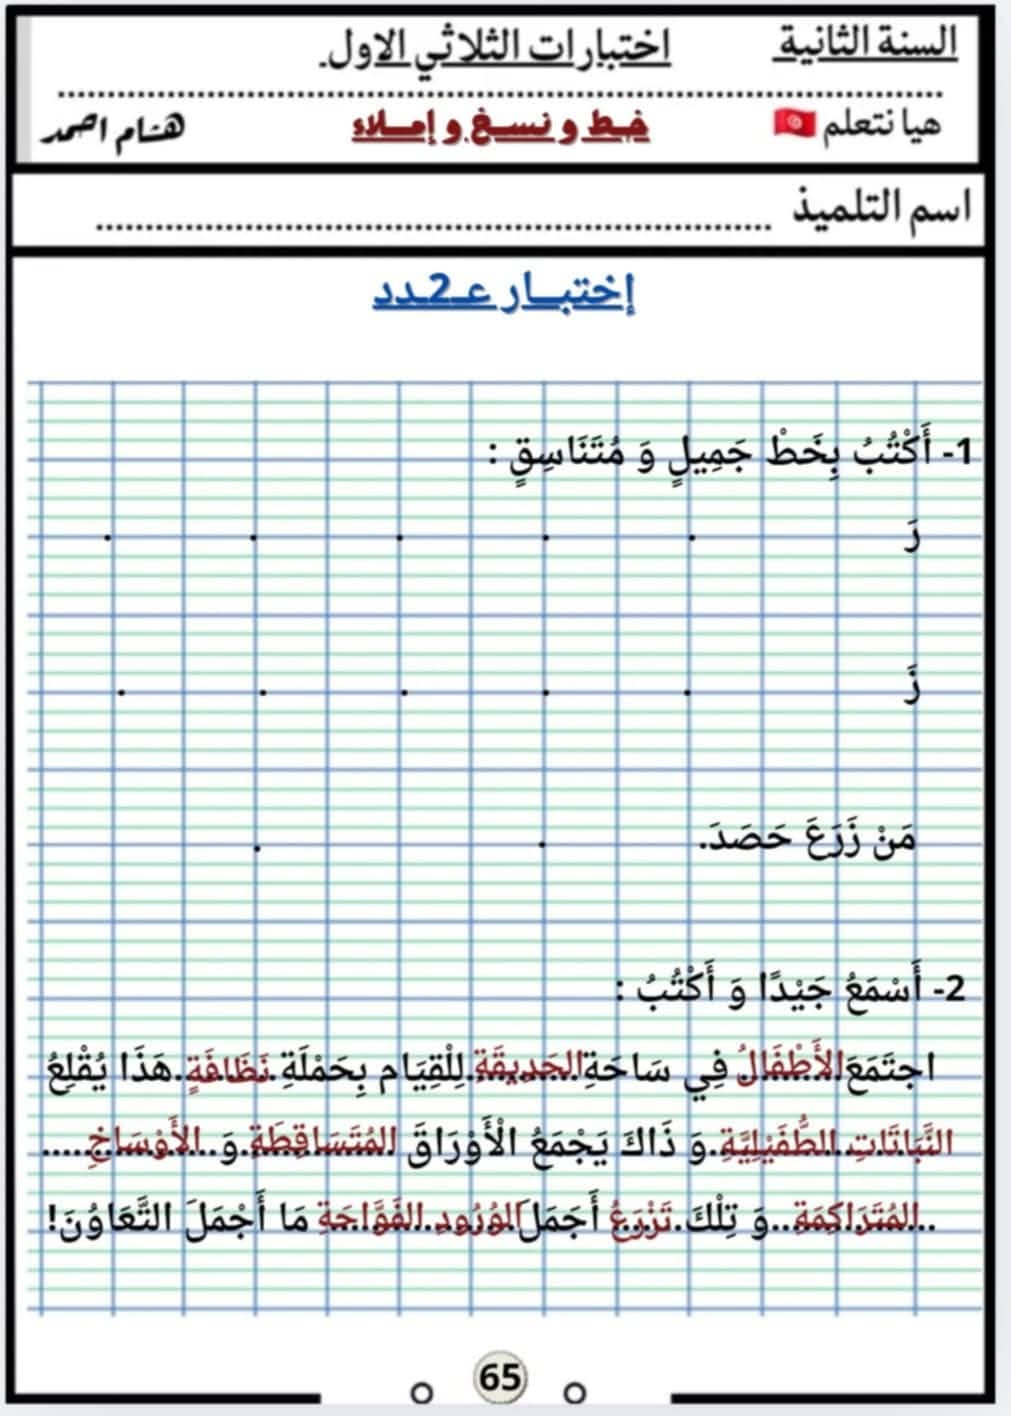 السنة الثانية اختبارات الثلاثي الاول.
هيا نتعلم خط و نسخ و إملاء هشام احمد
اسم التلميذ
إختبار عـ2ـدد
1- أَكْتُبُ بِخَطْ جَمِيلٍ وَ مُتَنَاسِقٍ :
رَ
زَ
مَنْ زَرَعَ حَصَدَ.
2- أَسْمَعُ جَيْدًا وَ أَكْتُبُ :
اجتَمَعَ الأَطْفَالُ فِي سَاحَةِ الحَدِيقَةِ لِلْقِيَام بِحَمْلَةِ نَظَافَةٍ. هَذَا يُقْلِعُ
النَّبَاتَاتِ الطُّفَيْلِيَّةِ. وَ ذَاكَ يَجْمَعُ الْأَوْرَاقَ المُتَسَاقِطَةِ وَ الأَوْسَاخِ
المُتَرَاكِمَةِ وَ تِلْكَ تَزْرَعُ أَجمَلَ الوُرُودِ الفَوَّاحَةِ مَا أَجْمَلَ التَّعَاوُنَ!
65